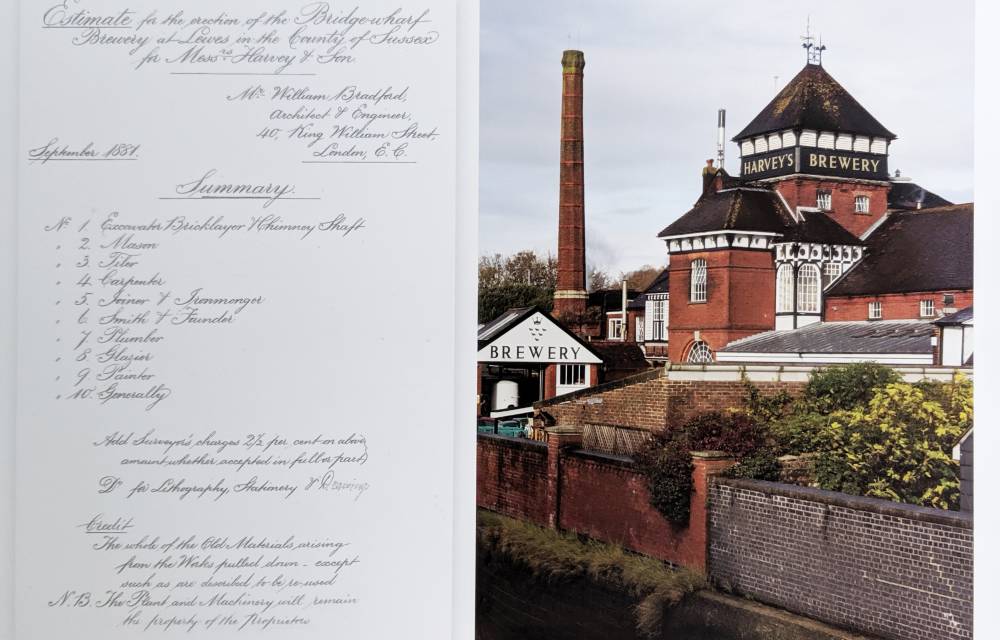 Estimate for the erection of the Bridge-wharf
Brewery at Lewes in the County of Sussex
for Messrs Harvey & Son.
Mr. William Bradford,
Architect & Engineer,
40, King William Street,
London, E.C.
September 1881.
Summary.
No 1. Excavator Bricklayer & Chimney Shaft
" 2. Mason
" 3. Tiler
" 4. Carpenter
" 5. Joiner & Ironmonger
" 6. Smith & Founder
" 7. Plumber
" 8. Glazier
" 9. Painter
" 10. Generally
Add Surveyor's charges 2½ per cent on above
amount whether accepted in full or part)
Do for Lithography, Stationery &
Credit
The whole of the Old Materials, arising
from the Works pulled down - except
such as are described to be re-used
N.B. The Plant and Machinery will remain
the property of the Proprietors
HARVEY'S BREWERY
BREWERY